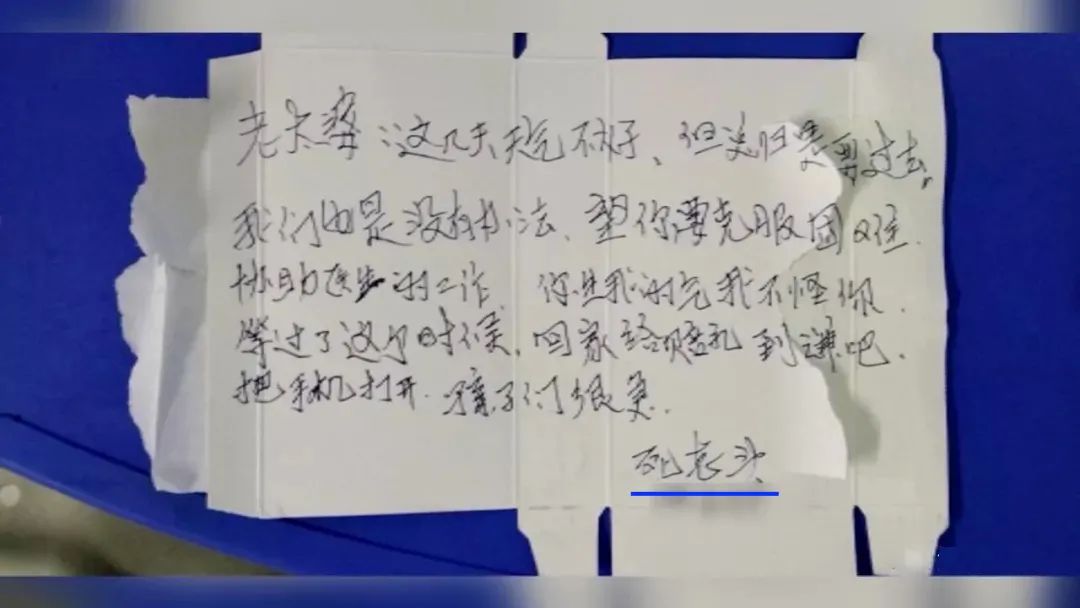 老太婆：这几天天气不好、但总归是要过去。
我们也是没有办法、望你要克服困难.
协助医生的工作. 你生我的气我不怪你.
等过了这个时候. 回家给你赔礼到谦吧.
把手机打开. 孩子们很急.
死老头